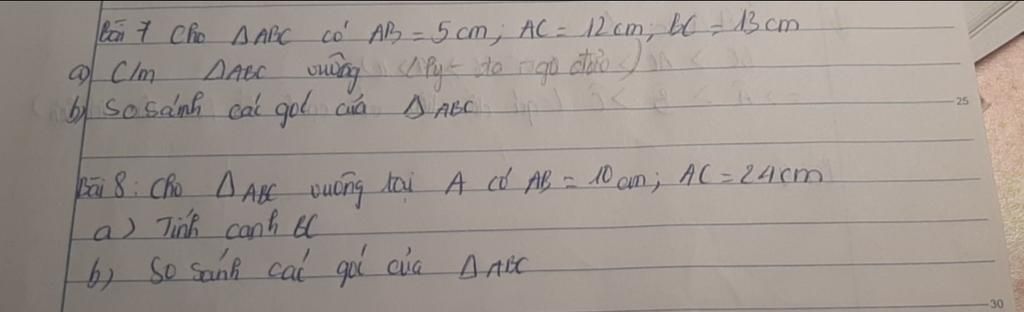 Bài 7 Cho ΔABC có AB = 5cm; AC = 12cm; BC = 13cm
a) C/m ΔABC vuông (Py-ta-go đảo)
b) So sánh các góc của ΔABC
25
Bài 8: Cho ΔABC vuông tại A có AB = 10cm; AC = 24cm
a) Tính cạnh BC
b) So sánh các góc của ΔABC
30